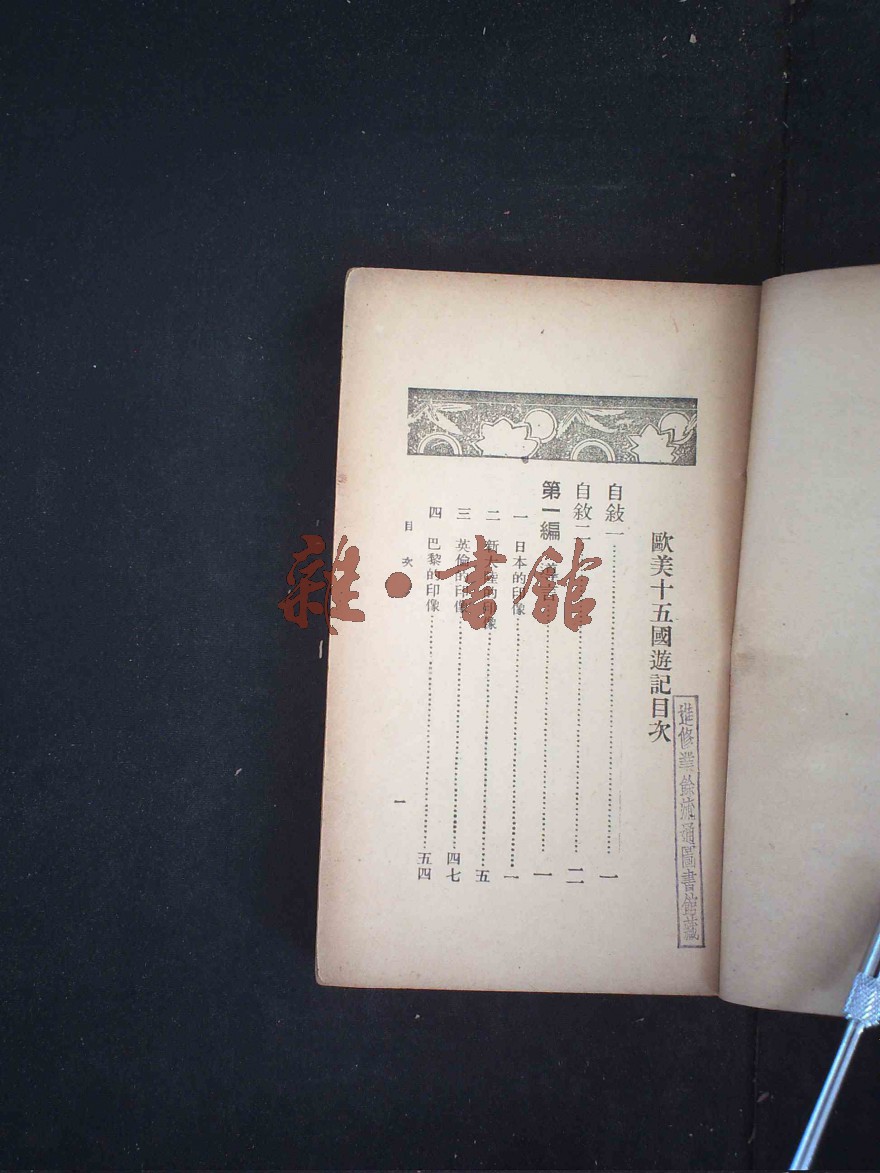 歐美十五國遊記目次
自敍一……一
自敘二……二
第一編……一
一 日本的印像……一
二 新大陸的印像……五
三 英倫的印像……四七
四 巴黎的印像……五四
目次
一
圖書館藏
雜·書館